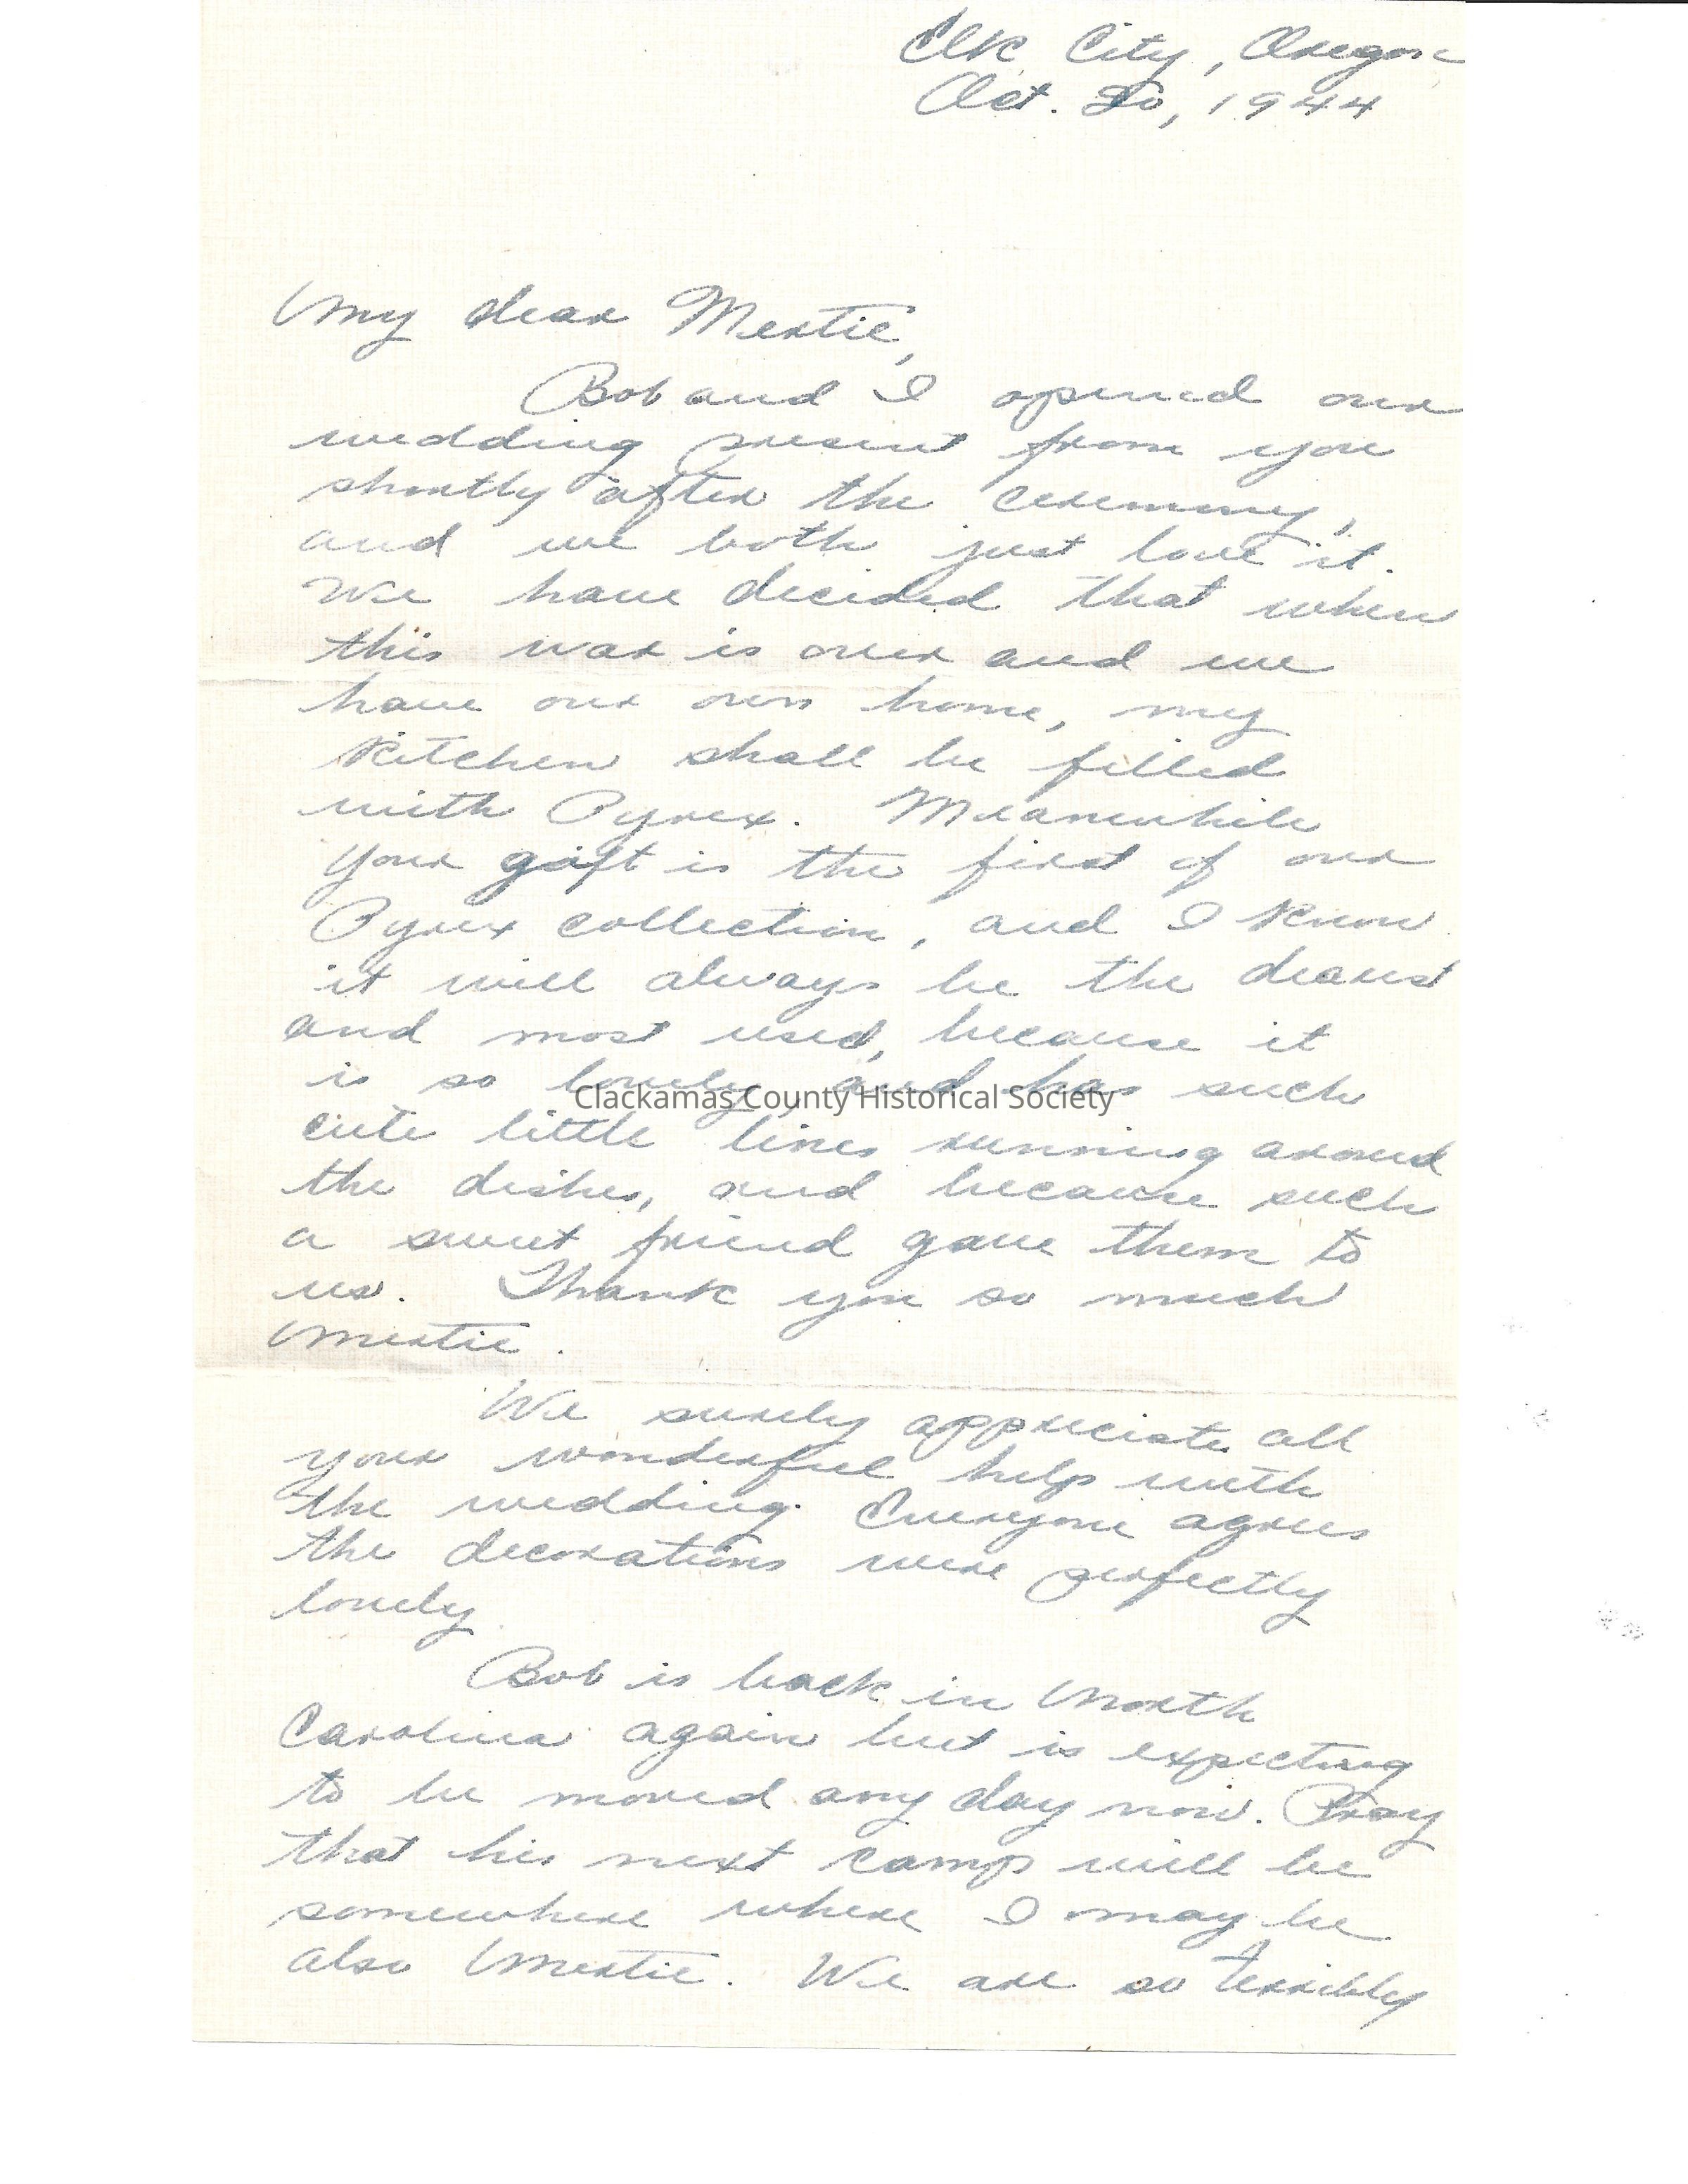 Elk City, Oregon
Oct. 20, 1944
My dear Mertie,
Bob and I opened our
wedding present from you
shortly after the ceremony,
and we both just love it.
We have decided that when
this war is over and we
have our own home, my
kitchen shall be filled
with Pyrex. Meanwhile
your gift is the first of our
Pyrex collection, and I know
it will always be the dearest
and most used, because it
is so lovely, and has such
Clackamas County Historical Society
cute little lines running around
the dishes, and because such
a sweet friend gave them to
us. Thank you so much
Mertie.
We surely appreciate all
your wonderful help with
the wedding. Everyone agrees
the decorations were perfectly
lovely
Bob is back in North
Carolina again but is expecting
to be moved any day now. Pray
that his next camp will be
somewhere where I may be
also Mertie. We are so terribly